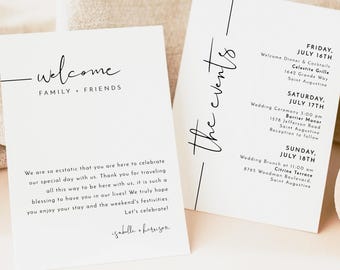 welcome
FAMILY + FRIENDS
We are so ecstatic that you are here to celebrate
our special day with us. Thank you for traveling
all this way to be here with us, it is such a
blessing to have you in our lives! We truly hope
you enjoy your stay and the weekend's festivities.
Let's celebrate!
isabelle + harrison
the events
FRIDAY,
JULY 16TH
Welcome Dinner & Cocktails
Celestite Grille
1640 Grande Way
Saint Augustine
SATURDAY,
JULY 17TH
Wedding Ceremony 5:00 PM
Barrier Manor
1578 Jefferson Road
Saint Augustine
Reception to Follow
SUNDAY,
JULY 18TH
Wedding Brunch at 11:00 am
Citrine Terrace
8795 Woodman Boulevard
Saint Augustine